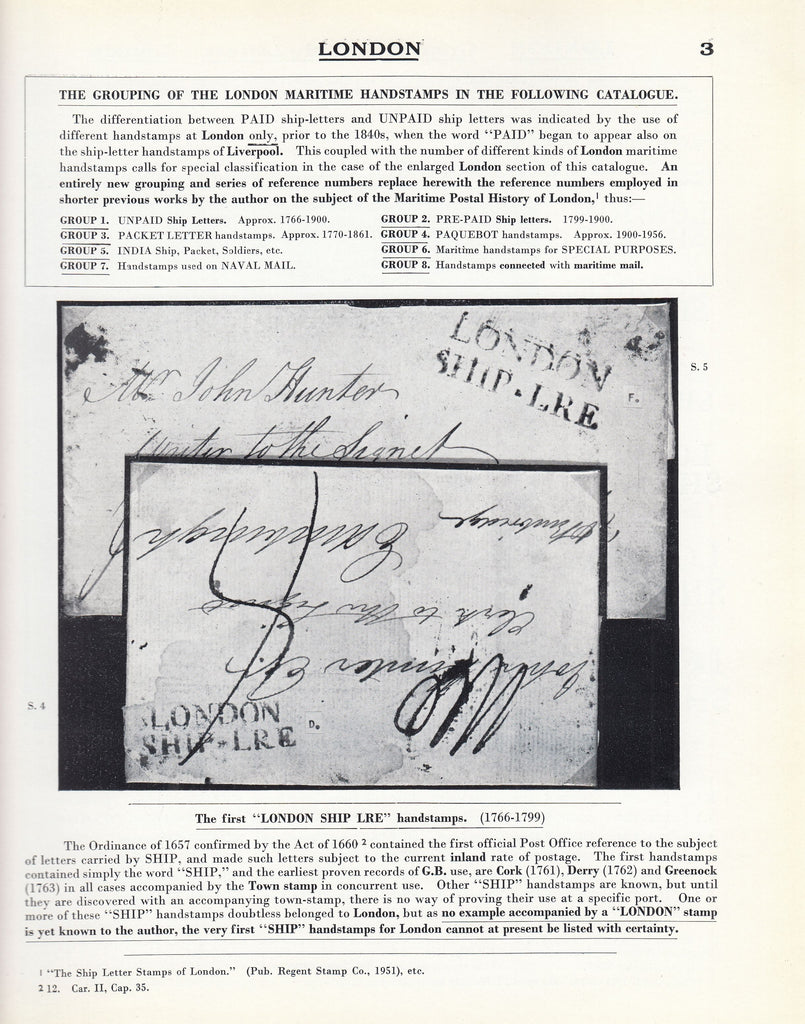 LONDON
3
THE GROUPING OF THE LONDON MARITIME HANDSTAMPS IN THE FOLLOWING CATALOGUE.
The differentiation between PAID ship-letters and UNPAID ship letters was indicated by the use of
different handstamps at London only, prior to the 1840s, when the word "PAID" began to appear also on
the ship-letter handstamps of Liverpool. This coupled with the number of different kinds of London maritime
handstamps calls for special classification in the case of the enlarged London section of this catalogue. An
entirely new grouping and series of reference numbers replace herewith the reference numbers employed in
shorter previous works by the author on the subject of the Maritime Postal History of London,1 thus:—
GROUP 1. UNPAID Ship Letters. Approx. 1766-1900.
GROUP 2. PRE-PAID Ship letters. 1799-1900.
GROUP 3. PACKET LETTER handstamps. Approx. 1770-1861.
GROUP 4. PAQUEBOT handstamps. Approx. 1900-1956.
GROUP 5. INDIA Ship, Packet, Soldiers, etc.
GROUP 6. Maritime handstamps for SPECIAL PURPOSES.
GROUP 7. Handstamps used on NAVAL MAIL.
GROUP 8. Handstamps connected with maritime mail.
LONDON
SHIP-LRE
F.
S. 5
Mr John Hunter
Writer to the Signet
Edinburgh
Clerk to the Signet
John Hunter Esqr
S. 4
LONDON
SHIP-LRE
D.
The first "LONDON SHIP LRE" handstamps. (1766-1799)
The Ordinance of 1657 confirmed by the Act of 1660 2 contained the first official Post Office reference to the subject
of letters carried by SHIP, and made such letters subject to the current inland rate of postage. The first handstamps
contained simply the word "SHIP," and the earliest proven records of G.B. use, are Cork (1761), Derry (1762) and Greenock
(1763) in all cases accompanied by the Town stamp in concurrent use. Other "SHIP" handstamps are known, but until
they are discovered with an accompanying town-stamp, there is no way of proving their use at a specific port. One or
more of these "SHIP" handstamps doubtless belonged to London, but as no example accompanied by a "LONDON" stamp
is yet known to the author, the very first "SHIP" handstamps for London cannot at present be listed with certainty.
1 "The Ship Letter Stamps of London." (Pub. Regent Stamp Co., 1951), etc.
2 12. Car. II, Cap. 35.